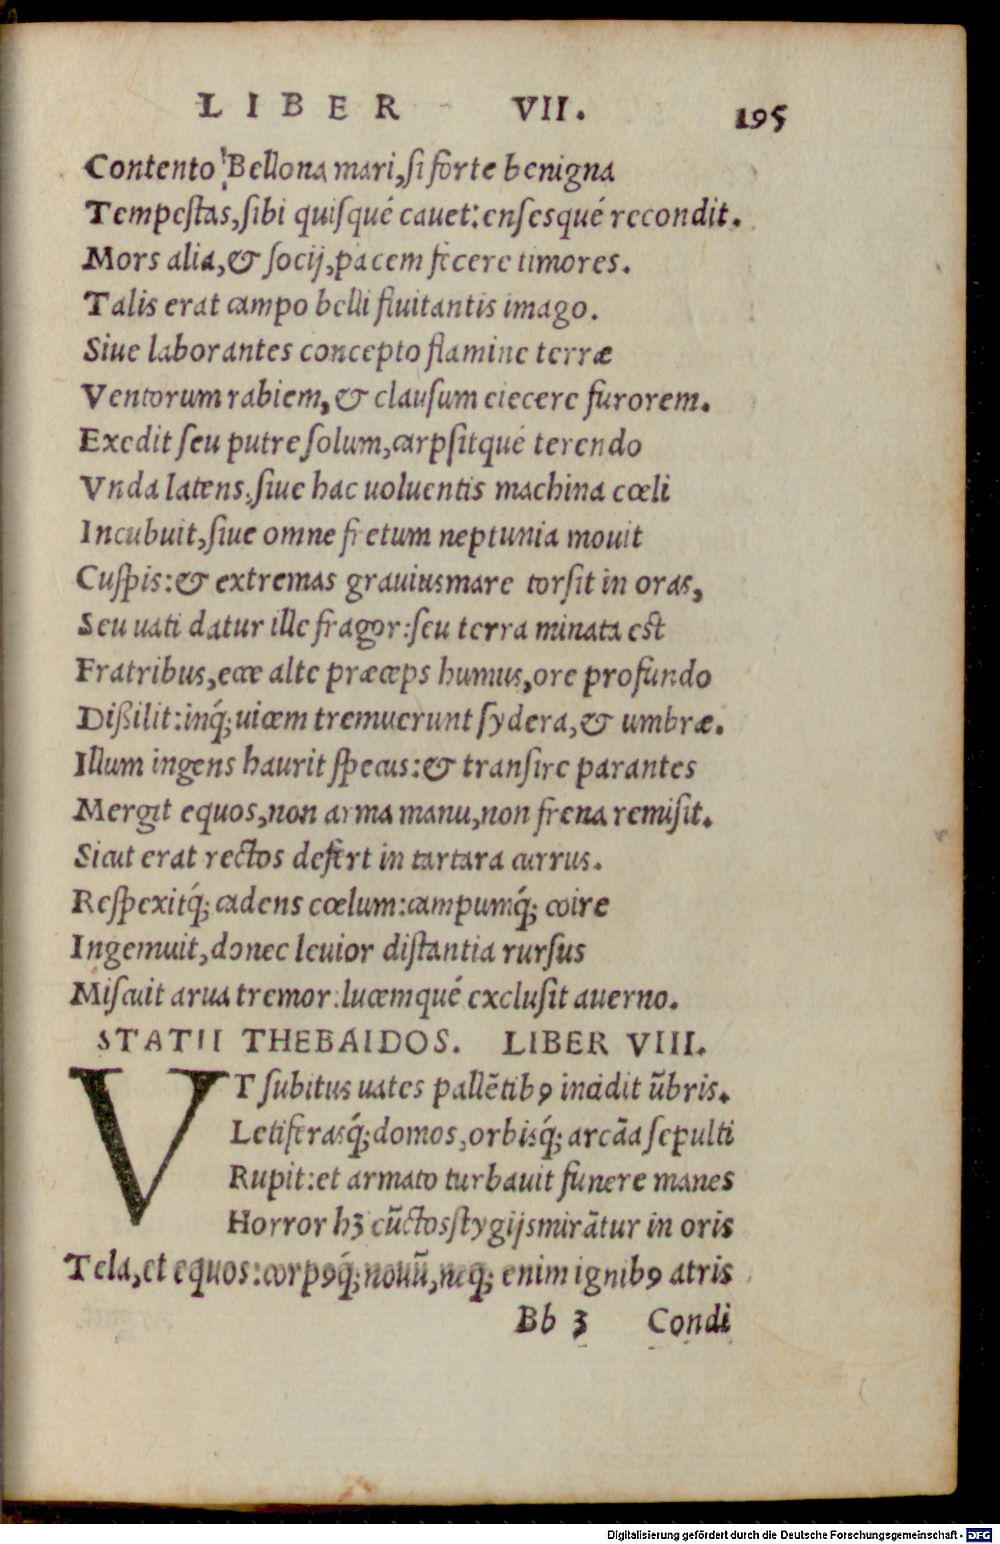 LIBER VII. 195
Contento Bellona mari, si forte benigna
Tempestas, sibi quisqué cauet: ensesqué recondit.
Mors alia, & socij, pacem fecere timores.
Talis erat campo belli fluitantis imago.
Siue laborantes concepto flamine terræ
Ventorum rabiem, & clausum eiecere furorem.
Exedit seu putre solum, carpsitqué terendo
Vnda latens, siue hac uoluentis machina cœli
Incubuit, siue omne fretum neptunia mouit
Cuspis: & extremas grauius mare torsit in oras,
Seu uati datur ille fragor: seu terra minata est
Fratribus, ecce alte præceps humus, ore profundo
Dißilit: inq́; uicem tremuerunt sydera, & umbræ.
Illum ingens haurit specus: & transire parantes
Mergit equos, non arma manu, non frena remisit.
Sicut erat rectos defert in tartara currus.
Respexitq́; cadens cœlum: campumq́; coire
Ingemuit, donec leuior distantia rursus
Miscuit arua tremor: lucemqué exclusit auerno.
STATII THEBAIDOS. LIBER VIII.
VT subitus uates pallētibꝯ incidit ūbris.
Letiferasq́; domos, orbisq́; arcāa sepulti
Rupit: et armato turbauit funere manes
Horror hꝫ cūctos stygijs mirātur in oris
Tela, et equos: corpꝯq́; nouū, neq; enim ignibꝯ atris
Bb 3 Condi
Digitalisierung gefördert durch die Deutsche Forschungsgemeinschaft - DFG